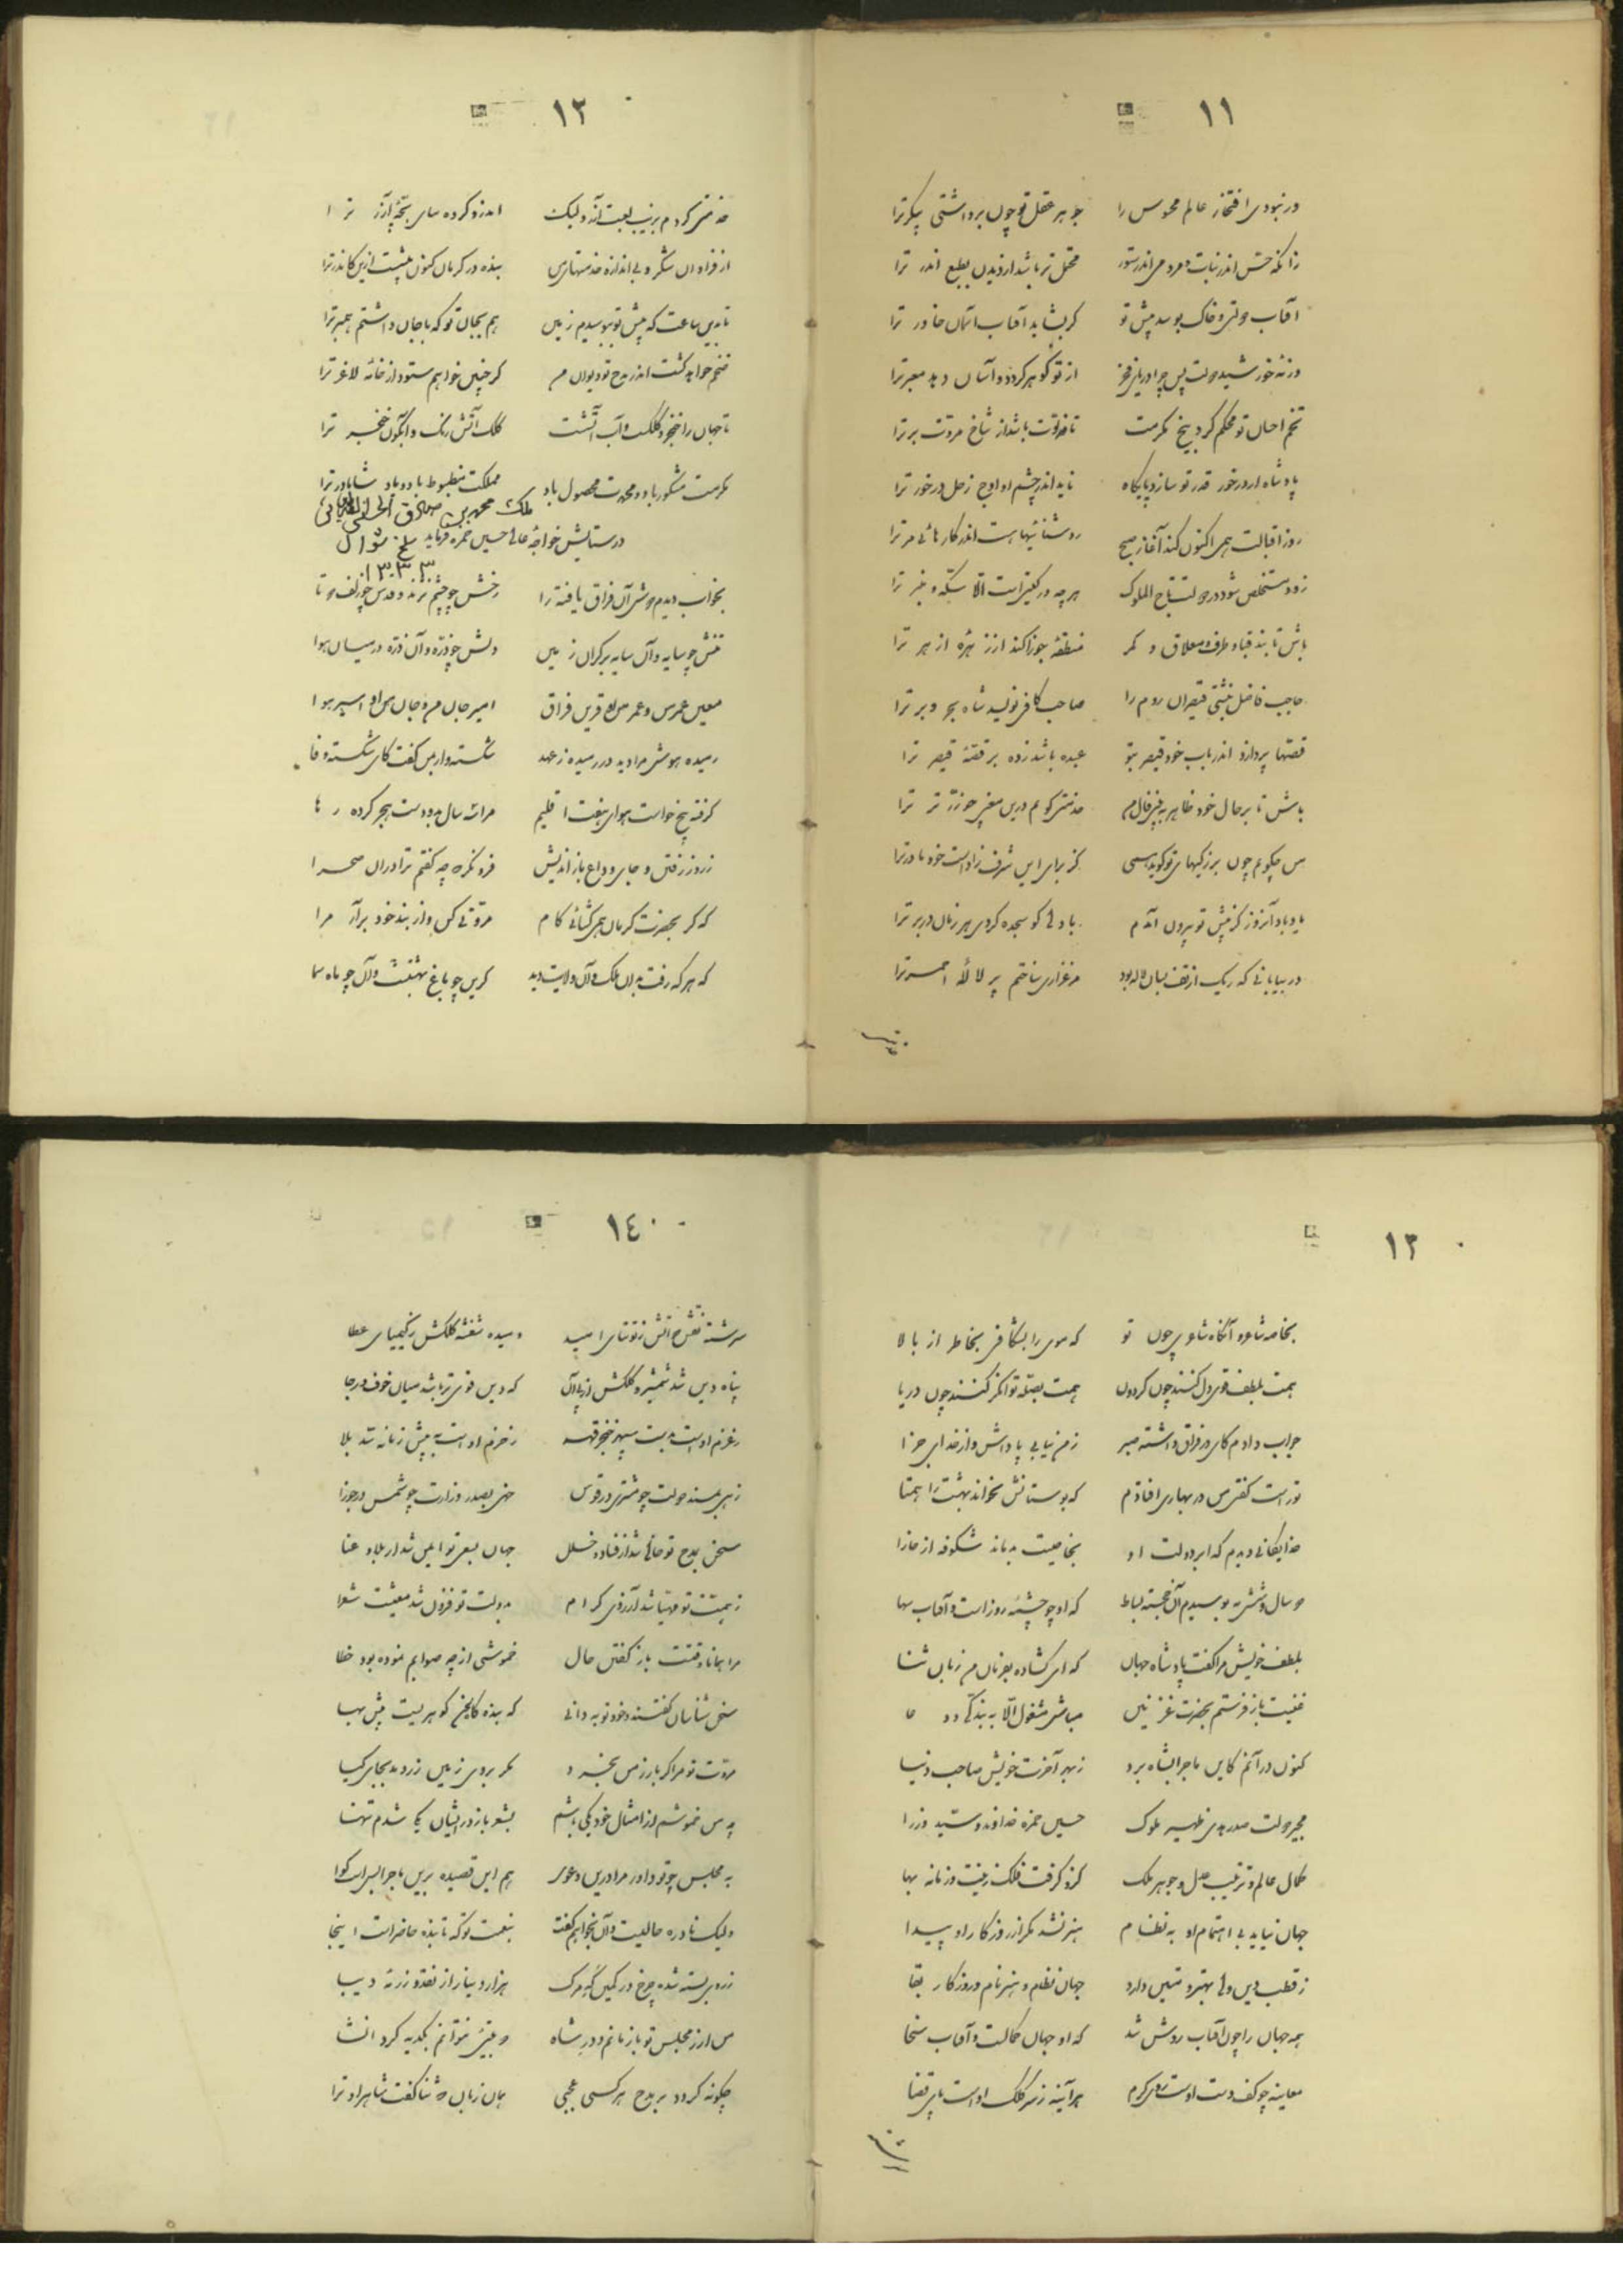 ١١
در نبودی افتخار عالم محسوس را جوهر عقل تو چون برداشتی پیکر ترا
زانکه حس اندر نبات و مردمی اندر ستور
آفتاب دولتی و خاک بوسد پیش تو گر بشاید آفتاب آسمان خاور ترا
ورنه خورشید دولت پس چرا دریای فخر از تو گوهر کرد و آسمان معبر ترا
تخم احسان تو محکم کرد بیخ مکرمت تا فتوت باشد از شاخ مروت بر ترا
پادشاه ار در خور قدر تو سازد پایگاه ناید اندر چشم او اوج زحل در خور ترا
روز اقبالت همی اکنون کند آغاز صبح روشنائیهاست اندر کارهائی مر ترا
زود مستخلص شود در دولت تاج الملوک هر چه در گیتی است الا سکه و منبر ترا
باش تا بند قبا و طرف معلاق و کمر منطقه جوزا کند از زهره ازهر ترا
حاجب فاضل نبشتی قیصران روم را صاحب کافی نویسد شاه بحر و بر ترا
قصها پردازد اندر باب خود قیصر بتو عبده باشد زده بر قصه قیصر ترا
باش تا بر حال خود ظاهر
من چگویم چون بزرگیهای تو گوید همی کز برای این شرف زادست خود مادر ترا
یاد باد آنروز کز پیش تو بیرون آمدم با دلی کو سجده کردی هر زمان در بر ترا
در بیابانی که ریگ از تف بسان لاله بود مرغزاری ساختم پر لاله احمر ترا
١٢
خدمتی کردم بزیب لعبت آزر ولیک
از فراوان شکر و بی اندازه خدمتهای من بنده در کرمان کنون بیشست ازین کاندر ترا
تا بدین ساعت که پیش تو ببوسیدم زمین هم بجان تو که با جان داشتم همبر ترا
ضخم خواهد گشت اندر مدح تو دیوان من گر چنین خواهم ستود از خانه لاغر ترا
تا جهان را خنجر و کلکست و آب آتشست کلک آتش رنگ و آبگون خنجر ترا
مکرمت مشکور باد و محمدت محصول باد مملکت مضبوط باد و باد شاها در ترا
ملک محمد بن صادق الحسینی
در ستایش خواجه عالی حسین حمزه فرماید سلخ شوال
١٣٣٣
بخواب دیدم دوش آن فراق یافته را رخش چو چشم نژند و قدش چو زلف دوتا
تنش چو سایه و آن سایه بر کران زمین دلش چو ذره و آن ذره در میان هوا
معین عمر من و عمر من قرین فراق امیر جان من و جان من اسیر هوا
رمیده هوش مرا دید در رمیده ز عهد شکسته وار بمن گفت کای شکسته وفا
گرفته بیخ خواست هوای هفت اقلیم مرا سه سال بدو دست هجر کرده رها
ز روز رفتن و جای وداع باز اندیش فرو نگر که چه گفتم ترا در آن صحرا
که گر بحضرت کرمان همی گشائی کام مروتی کن و از بند خود برآر مرا
که هر که رفت بدان ملک و آن ولایت دید کاین چو باغ بهشت و آن چو ماه سما
١٣
بخامه شاعر و آنگاه شاعری چون تو که موی را بشکافی بخاطر از بالا
همت بلطف قوی دل کنند چون گردون همت بصله توانگر کنند چون دریا
جواب دادم کای در فراق داشته صبر ز من نیابی پاداش و از خدای جزا
تو راست گفتی من در بهاری افتادم که بوستانش نخواند بهشت را همتا
خدایگانی دیدم که ابر دولت او بخاصیت بدماند شکوفه از خارا
دو سال و شش مه بوسیدم آن خجسته بساط که او چو چشمه روزاست و آفتاب سها
بلطف خویش مرا گفت پادشاه جهان که ای گشاده بفرمان من زبان ثنا
غنیمت باز فرستم بحضرت غزنین مباش مشغول الا به بندگی و دعا
کنون در آنم کاین ماجرا بشاه برد ز بهر آخرت خویش صاحب دنیا
مجیر دولت صدر هدی ظهیر ملوک حسین حمزه خداوند و سید وزرا
کمال عالم و ترتیب عدل و جوهر ملک کزو گرفت فلک زینت و زمانه بها
جهان نیاید بی اهتمام او به نظام هنر نشد مگر از روزگار او پیدا
ز قطب دین ولی بهتر و متین دارد جهان نظام و هنر نام و روزگار بقا
همه جهان را چون آفتاب روشن شد که او جهان کمالست و آفتاب سخا
معاینه چو کف دست اوست روی کرم هر آینه ز سر کلک اوست پای قضا
١٤
سرشته نقش دواتش ز توتیای امید دمیده شفشه کلکش ز کیمیای عطا
پناه دین شد شمشیر و کلکش از پی آن که دین قوی تر باشد میان خوف و رجا
ز عزم اوست بدست سپهر خنجر قهر ز حزم اوست به پیش زمانه سد بلا
زهی بمسند دولت چو مشتری در قوس خهی بصدر وزارت چو شمس در جوزا
سخن بمدح تو خالی شد از فساد و خلل جهان بسعی تو ایمن شد از بلا و عنا
ز همت تو مهیا شد آرزوی کرام بدولت تو فزون شد معیشت شعرا
مرا همانا وقتست باز گفتن حال خموشی از چه صوابم نموده بود خطا
سخن شناسان گفتند و خود تو به دانی که بنده کایخن گوهریست بیش بها
مروت تو مرا گر باز من بخرد مگر بروی زمین زر دمد بجای گیا
چه من خموشم از امثال خود یکی باشم بشعر باز در ایشان یکی شدم تنها
به مجلس چو تو داور مرا درین دعوی هم این قصیده برین ماجرا بس است گوا
ولیک نادره حالیست و آن نخواهم گفت بنعمت تو که تا بنده حاضراست اینجا
ز روی بسته شده چرخ در کمین گه مرگ هزار دینار از نقد و زر نه دیبا
من ار ز مجلس تو باز مانم و در شاه دو بیتی نتوانم بگدیه کرد انشا
چگونه گردد بر مدح هر کسی عجمی همان زبان که ثنا گفت شاه را و ترا